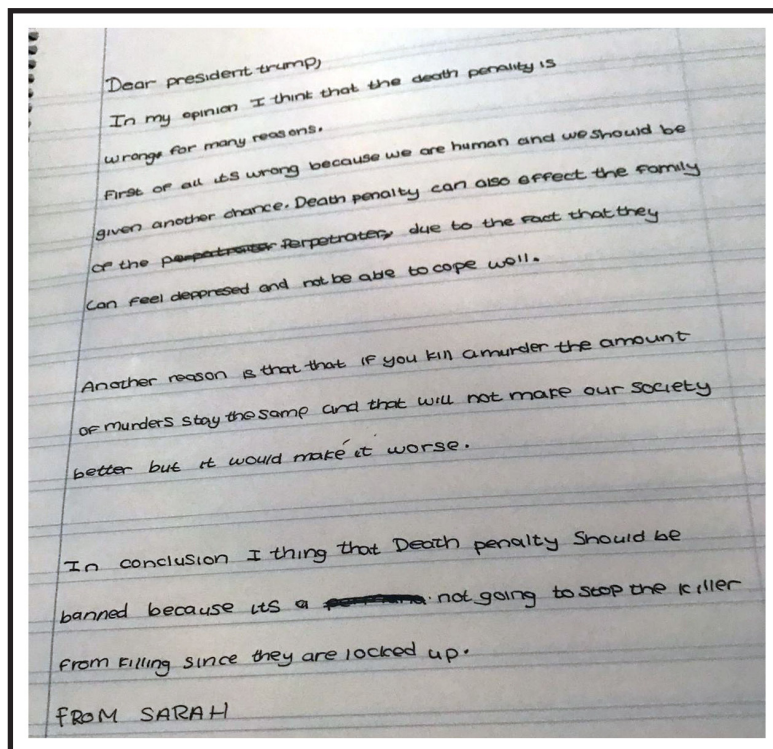 Dear president trump,
In my opinion I think that the death penality is
wrong for many reasons.
First of all its wrong because we are human and we should be
given another chance. Death penalty can also effect the family
of the perpetrater, due to the fact that they
can feel deppresed and not be able to cope well.
Another reason is that that if you kill a murder the amount
of murders stay the same and that will not make our society
better but it would make it worse.
In conclusion I thing that Death penalty Should be
banned because its a not going to stop the killer
from killing since they are locked up.
FROM SARAH